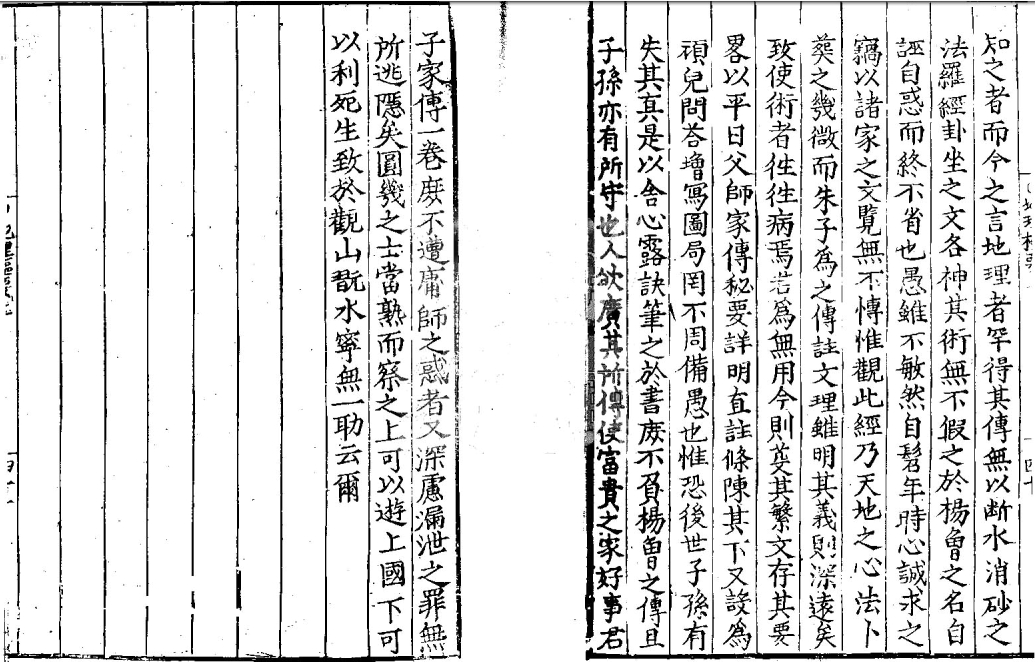 知之者而今之言地理者罕得其傳無以断水消砂之
法羅經卦坐之文各神其術無不假之於楊曾之名自
誣自惑而終不省也愚雖不敏然自髫年時心誠求之
竊以諸家之文覽無不慱惟觀此經乃天地之心法卜
葬之幾微而朱子為之傳註文理雖明其義則深遠矣
致使術者徃徃病焉若爲無用今則芟其繁文存其要
畧以平日父師家傳秘要詳明直註條陳其下又設為
頑兒問荅增寫圖局罔不周備愚也惟恐後世子孫有
失其真是以舍心露訣筆之於書庻不負楊曾之傳且
子孫亦有所守也人欲廣其所傳使富貴之家好事君
子家傳一卷庻不遭庸師之惑者又深慮漏泄之罪無
所逃隱矣圓幾之士當熟而察之上可以遊上國下可
以利死生致於觀山翫水寧無一助云爾